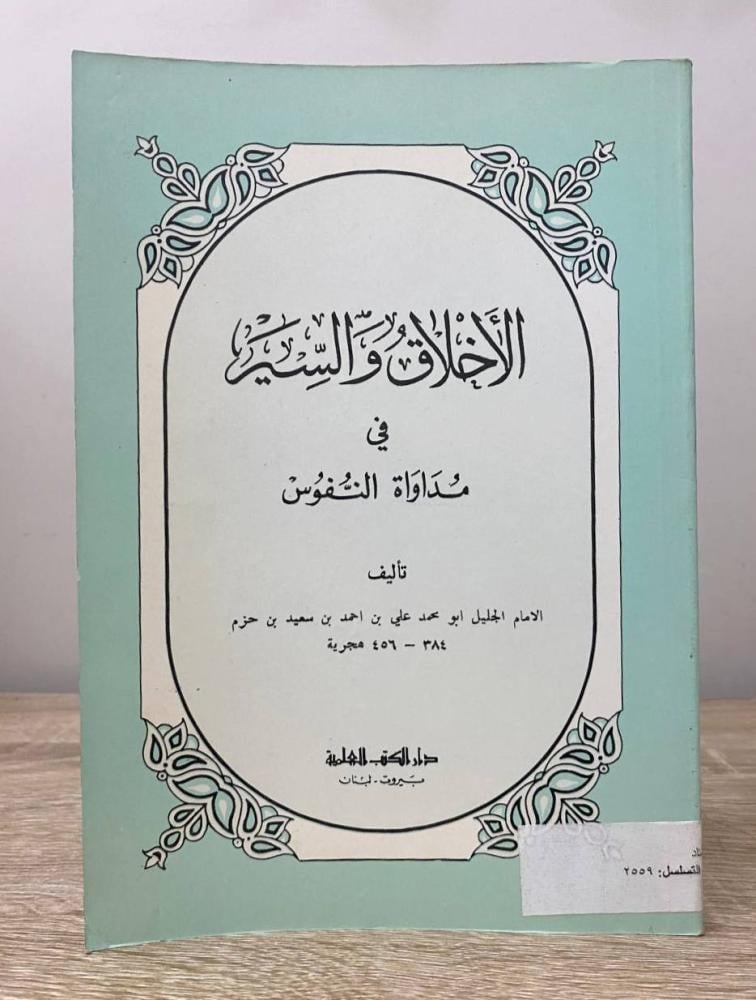 الأَخْلَاقُ وَالسِّيَر
في
مُدَاوَاة النُّفُوسْ
تأليف
الامام الجليل ابو محمد علي بن احمد بن سعيد بن حزم
٣٨٤ - ٤٥٦ هجرية
دار الكتب العلمية
بيروت - لبنان
التسلسل: ٢٥٥٩